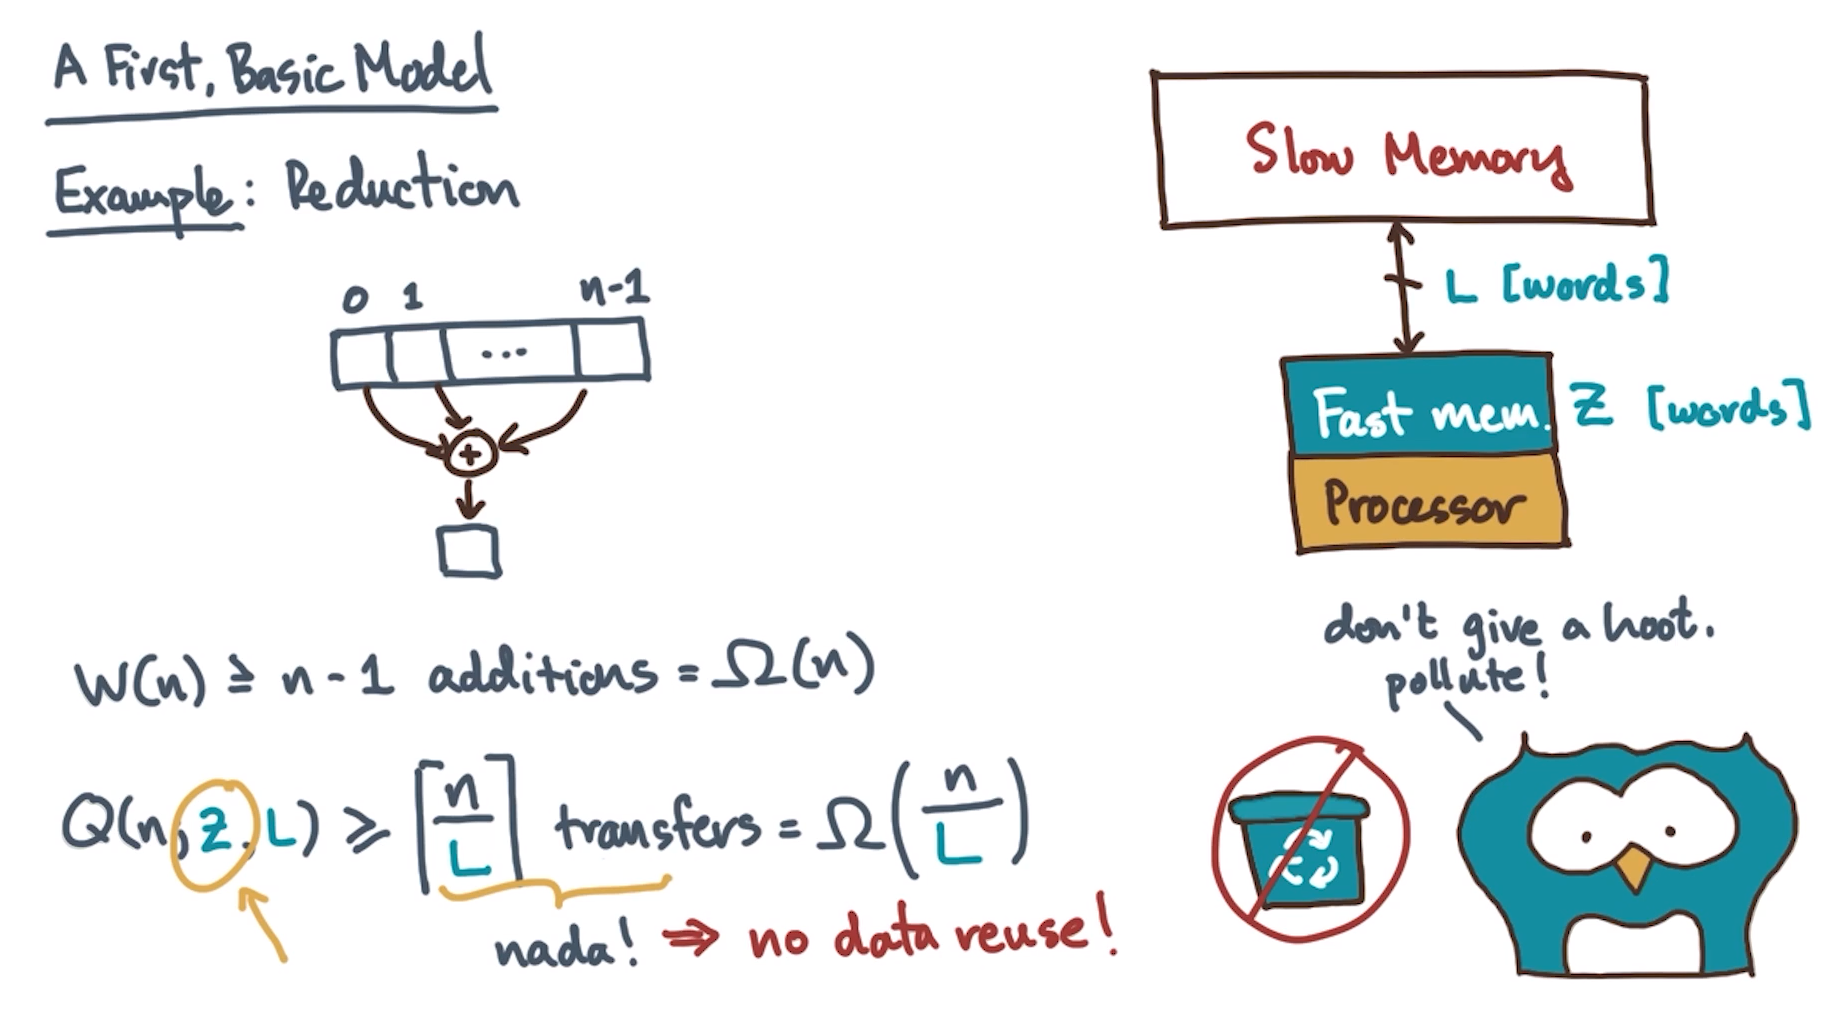 A First, Basic Model
Example: Reduction
0 1 n-1
...
+
W(n) ≥ n - 1 additions = Ω(n)
Q(n; Z, L) ≥ ⌈n/L⌉ transfers = Ω(n/L)
nada! ⇒ no data reuse!
Slow Memory
L [words]
Fast mem. Z [words]
Processor
don't give a hoot.
pollute!